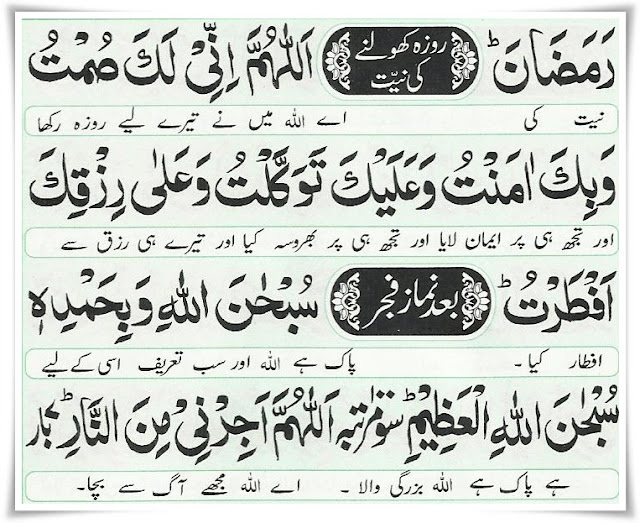 رَمَضَانَ ؕ روزہ کھولنے کی نیّت اَللّٰهُمَّ اِنِّیْ لَكَ صُمْتُ
نیت کی اے اللہ میں نے تیرے لیے روزہ رکھا
وَبِكَ اٰمَنْتُ وَعَلَیْكَ تَوَكَّلْتُ وَعَلٰی رِزْقِكَ
اور تجھ ہی پر ایمان لایا اور تجھ ہی پر بھروسہ کیا اور تیرے ہی رزق سے
اَفْطَرْتُ ؕ بعد نماز فجر سُبْحٰنَ اللهِ وَبِحَمْدِهٖ
افطار کیا ۔ پاک ہے اللہ اور سب تعریف اسی کے لیے
سُبْحٰنَ اللهِ الْعَظِیْمِ ؕ سو مرتبہ اَللّٰهُمَّ اَجِرْنِیْ مِنَ النَّارِ ؕ بار
ہے پاک ہے اللہ بزرگی والا ۔ اے اللہ مجھے آگ سے بچا۔